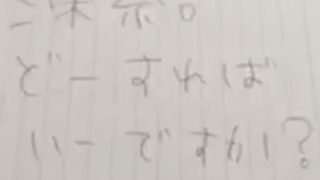 どーすれば
いーですか?